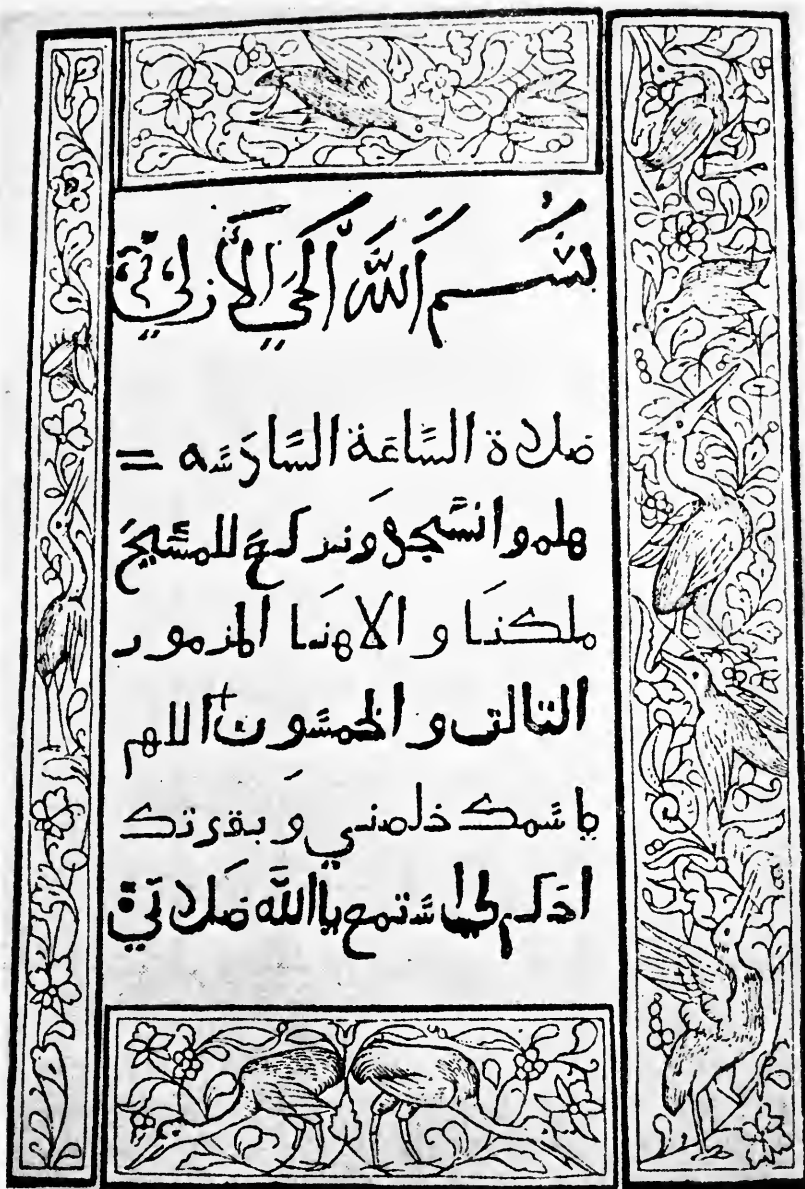 بسم الله الحي الأزلي
صلاة الساعة السادسه =
هلموا نسجد ونركع للمسيح
ملكنا والاهنا المزمور
التالت والخمسون + اللهم
باسمك خلصني وبقوتك
احكم لي استمع يا الله صلاتي